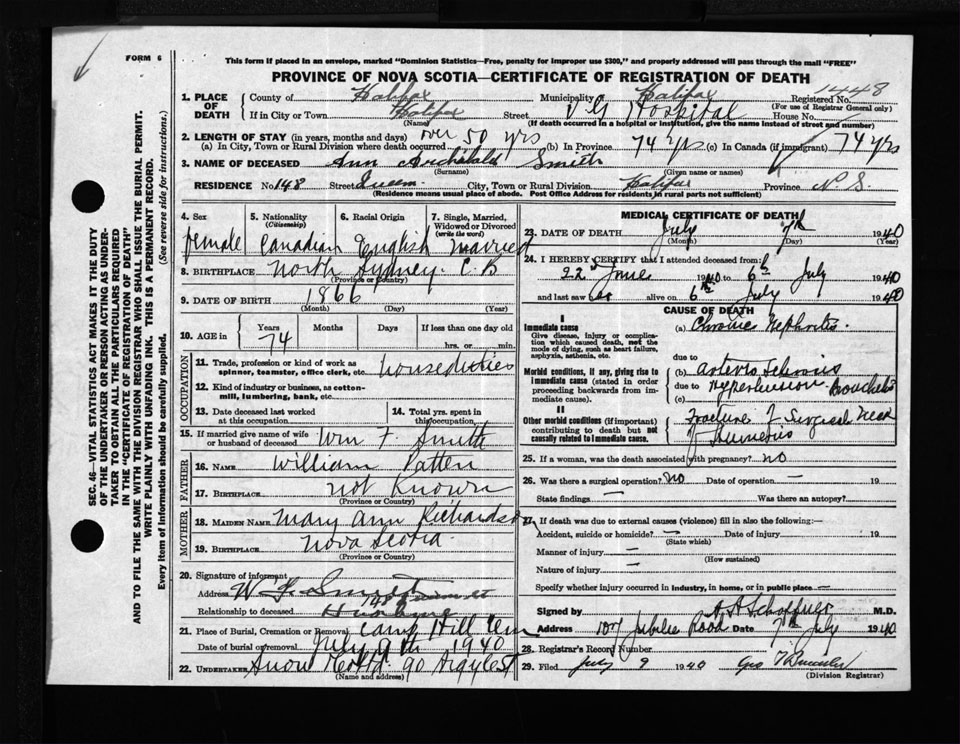 FORM 6
This form if placed in an envelope, marked "Dominion Statistics—Free, penalty for improper use $300," and properly addressed will pass through the mail "FREE"
PROVINCE OF NOVA SCOTIA—CERTIFICATE OF REGISTRATION OF DEATH
SEC. 46—VITAL STATISTICS ACT MAKES IT THE DUTY
OF THE UNDERTAKER OR PERSON ACTING AS UNDER-
TAKER TO OBTAIN ALL THE PARTICULARS REQUIRED
IN THE "CERTIFICATE OF REGISTRATION OF DEATH"
AND TO FILE THE SAME WITH THE DIVISION REGISTRAR WHO SHALL ISSUE THE BURIAL PERMIT.
WRITE PLAINLY WITH UNFADING INK. THIS IS A PERMANENT RECORD.
Every item of information should be carefully supplied. (See reverse side for instructions.)
1. PLACE OF DEATH County of Halifax Municipality Halifax Registered No. 1448
(For use of Registrar General only)
If in City or Town Halifax Street V.G Hospital House No.
(Name) (If death occurred in a hospital or institution, give the name instead of street and number)
2. LENGTH OF STAY (in years, months and days)
(a) In City, Town or Rural Division where death occurred over 50 yrs (b) In Province 74 yrs (c) In Canada (if immigrant) 74 yrs
3. NAME OF DECEASED Ann Archibald Smith
(Surname) (Given name or names)
RESIDENCE No. 148 Street Queen City, Town or Rural Division Halifax Province N.S.
(Residence means usual place of abode. Post Office Address for residents in rural parts not sufficient)
4. Sex female
5. Nationality (Citizenship) Canadian
6. Racial Origin English
7. Single, Married, Widowed or Divorced (write the word) married
8. BIRTHPLACE North Sydney. C.B
(Province or Country)
9. DATE OF BIRTH 1866
(Month) (Day) (Year)
10. AGE in Years 74 Months Days If less than one day old
hrs. or min.
OCCUPATION
11. Trade, profession or kind of work as spinner, teamster, office clerk, etc. houseduties
12. Kind of industry or business, as cotton-mill, lumbering, bank, etc.
13. Date deceased last worked at this occupation
14. Total yrs. spent in this occupation
15. If married give name of wife or husband of deceased Wm F. Smith
FATHER
16. NAME William Patten
17. BIRTHPLACE not known
(Province or Country)
MOTHER
18. MAIDEN NAME Mary Ann Richardson
19. BIRTHPLACE Nova Scotia
(Province or Country)
20. Signature of informant W F Smith
Address 148
Relationship to deceased Husband
21. Place of Burial, Cremation or Removal Camp Hill Cem
Date of burial or removal July 9th 1940
22. UNDERTAKER Snow 90 Argyle St
(Name and address)
MEDICAL CERTIFICATE OF DEATH
23. DATE OF DEATH July 7th 1940
(Month) (Day) (Year)
24. I HEREBY CERTIFY that I attended deceased from
22 June 1940 to 6th July 1940
and last saw alive on 6th July 1940
CAUSE OF DEATH
I
Immediate cause
Give disease, injury or complication which caused death, not the mode of dying, such as heart failure, asphyxia, asthenia, etc.
(a) Chronic Nephritis
due to
Morbid conditions, if any, giving rise to immediate cause (stated in order proceeding backwards from immediate cause).
(b) Arterio Sclerosis
due to Hypertension
(c)
II
Other morbid conditions (if important) contributing to death but not causally related to immediate cause.
Fracture of Surgical Neck
of Humerus
25. If a woman, was the death associated with pregnancy? no
26. Was there a surgical operation? No Date of operation —
State findings — Was there an autopsy?
27. If death was due to external causes (violence) fill in also the following:—
Accident, suicide or homicide? — Date of injury 19
(State which)
Manner of injury —
(How sustained)
Nature of injury —
Specify whether injury occurred in industry, in home, or in public place —
Signed by M.D.
Address Jubilee Road Date 7th July 1940
28. Registrar's Record Number
29. Filed July 9 1940 Geo
(Division Registrar)